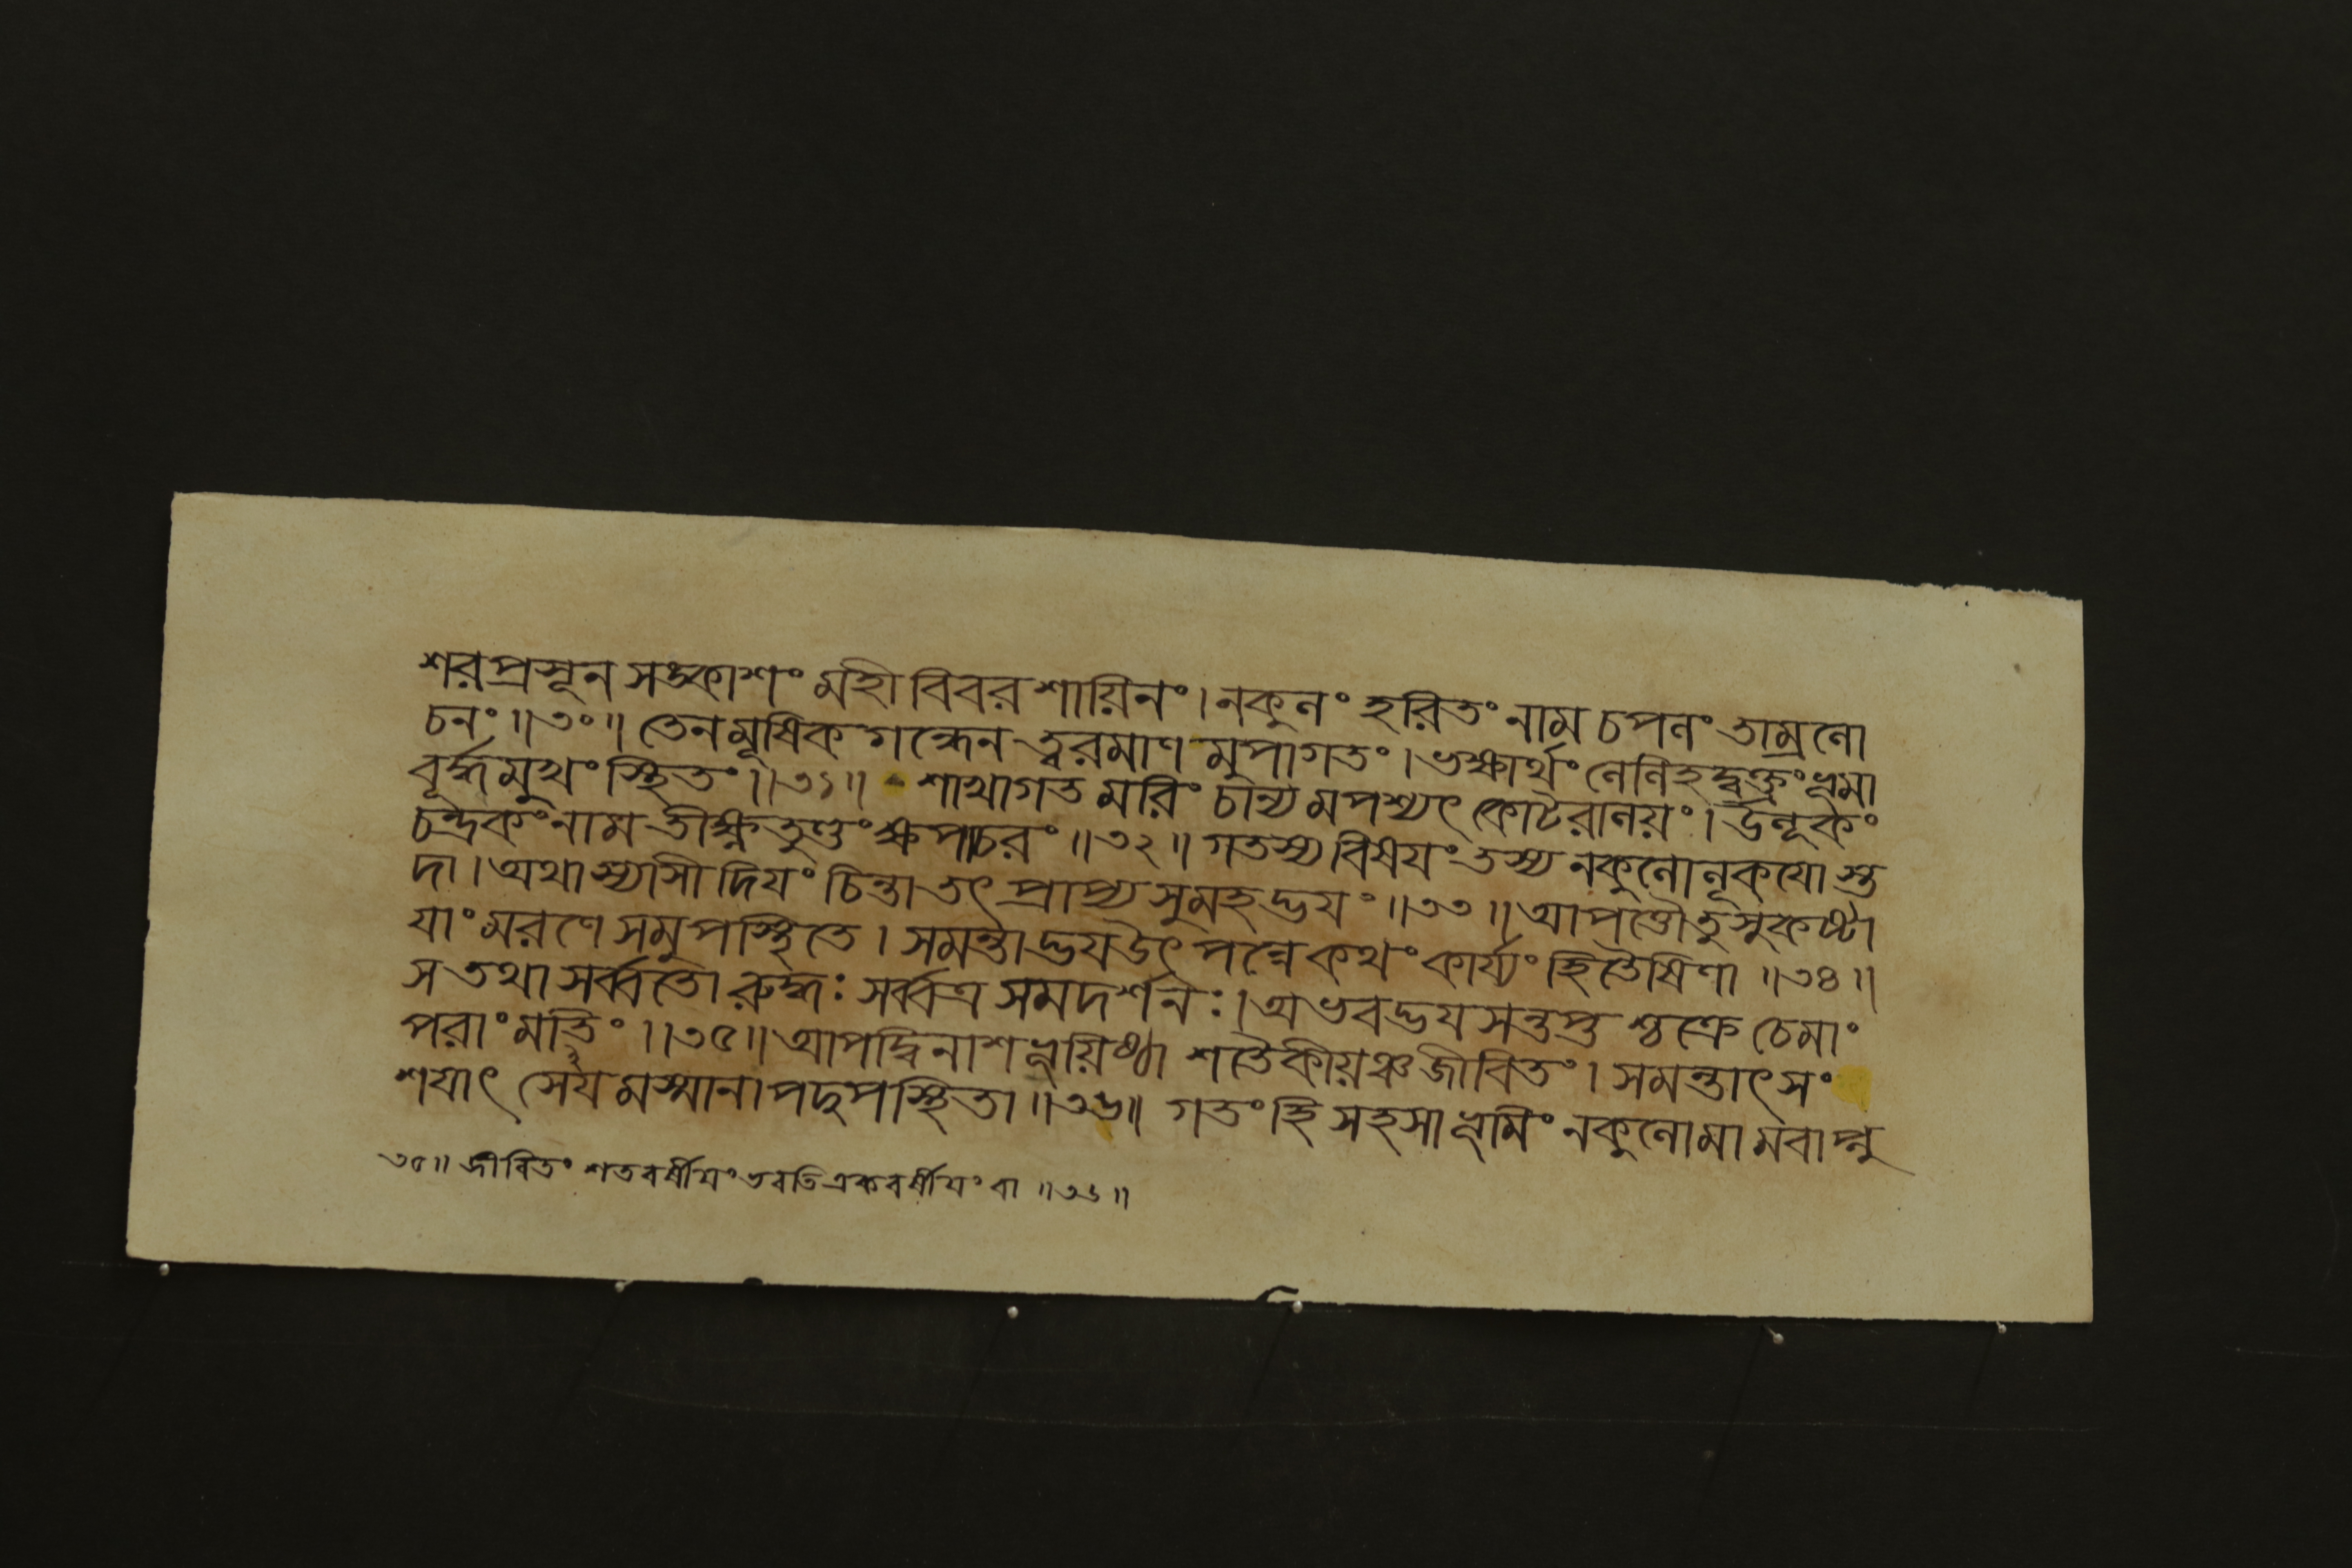 শরপ্রসূন সঙ্কাশং মহী বিবর শায়িনং। নকুলং হরিতং নাম চপলং তাম্রলো
চনং ॥৩০॥ তেন মূষিক গন্ধেন ত্বরমাণ মুপাগতং। ভক্ষার্থং লেলিহদ্বক্ত্রং ভূমা
বূর্দ্ধমুখং স্থিতং ॥৩১॥ শাখাগত মরিং চান্য মপশ্যৎ কোটরালয়ং। উলূকং
চন্দ্রকং নাম তীক্ষ্ণতুণ্ডং ক্ষপাচরং ॥৩২॥ গতস্য বিষযং তস্য নকুলোলূকযো স্ত
দা। অথাস্যাসী দিযং চিন্তা তৎ প্রাপ্য সুমহদ্ভযং ॥৩৩॥ আপত্তৌ তু সুকষ্টা
যাং মরণে সমুপস্থিতে। সমন্তাদ্ভযউৎপন্নে কথং কার্য্যং হিতৈষিণা ॥৩৪॥
স তথা সর্ব্বতো রুদ্ধঃ সর্ব্বত্র সমদর্শনঃ। অভবদ্ভযসন্তপ্ত শ্চক্রে চেমাং
পরাং মতিং ॥৩৫॥ আপদ্বিনাশভূয়িষ্ঠা শতৈকীয়ঞ্চ জীবিতং। সমন্তাৎ সং
শযাৎ সেযমস্মানাপদুপস্থিতা ॥৩৬॥ গতং হি সহসা ভূমিং নকুলো মামবাপ্নু
৩৫॥ জীবিতং শতবর্ষীয়ং ভবতি একবর্ষীয়ং বা ॥৩৬॥